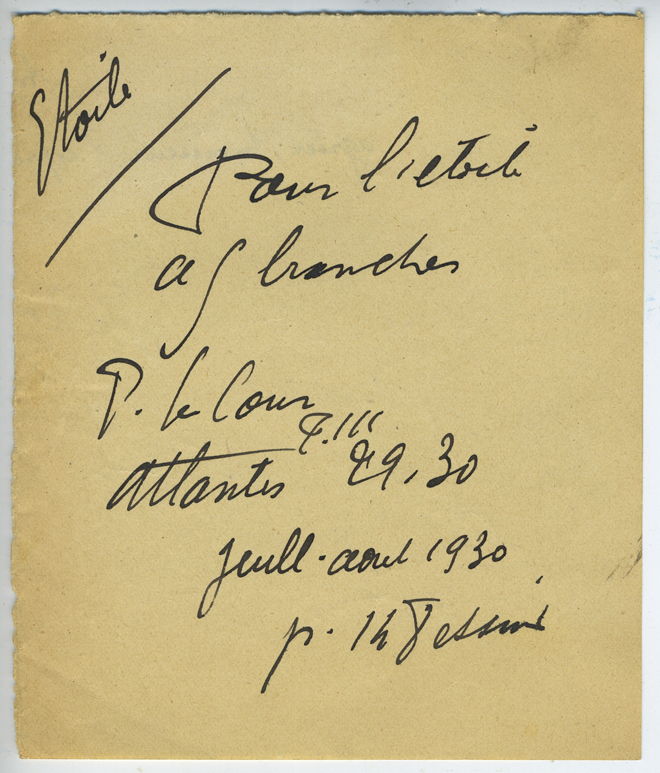 Etoile
Pour l'etoile
a 5 branches
P. le Cour
T.III
Atlantis 29,30
Juill-aout 1930
p. 14 Dessins